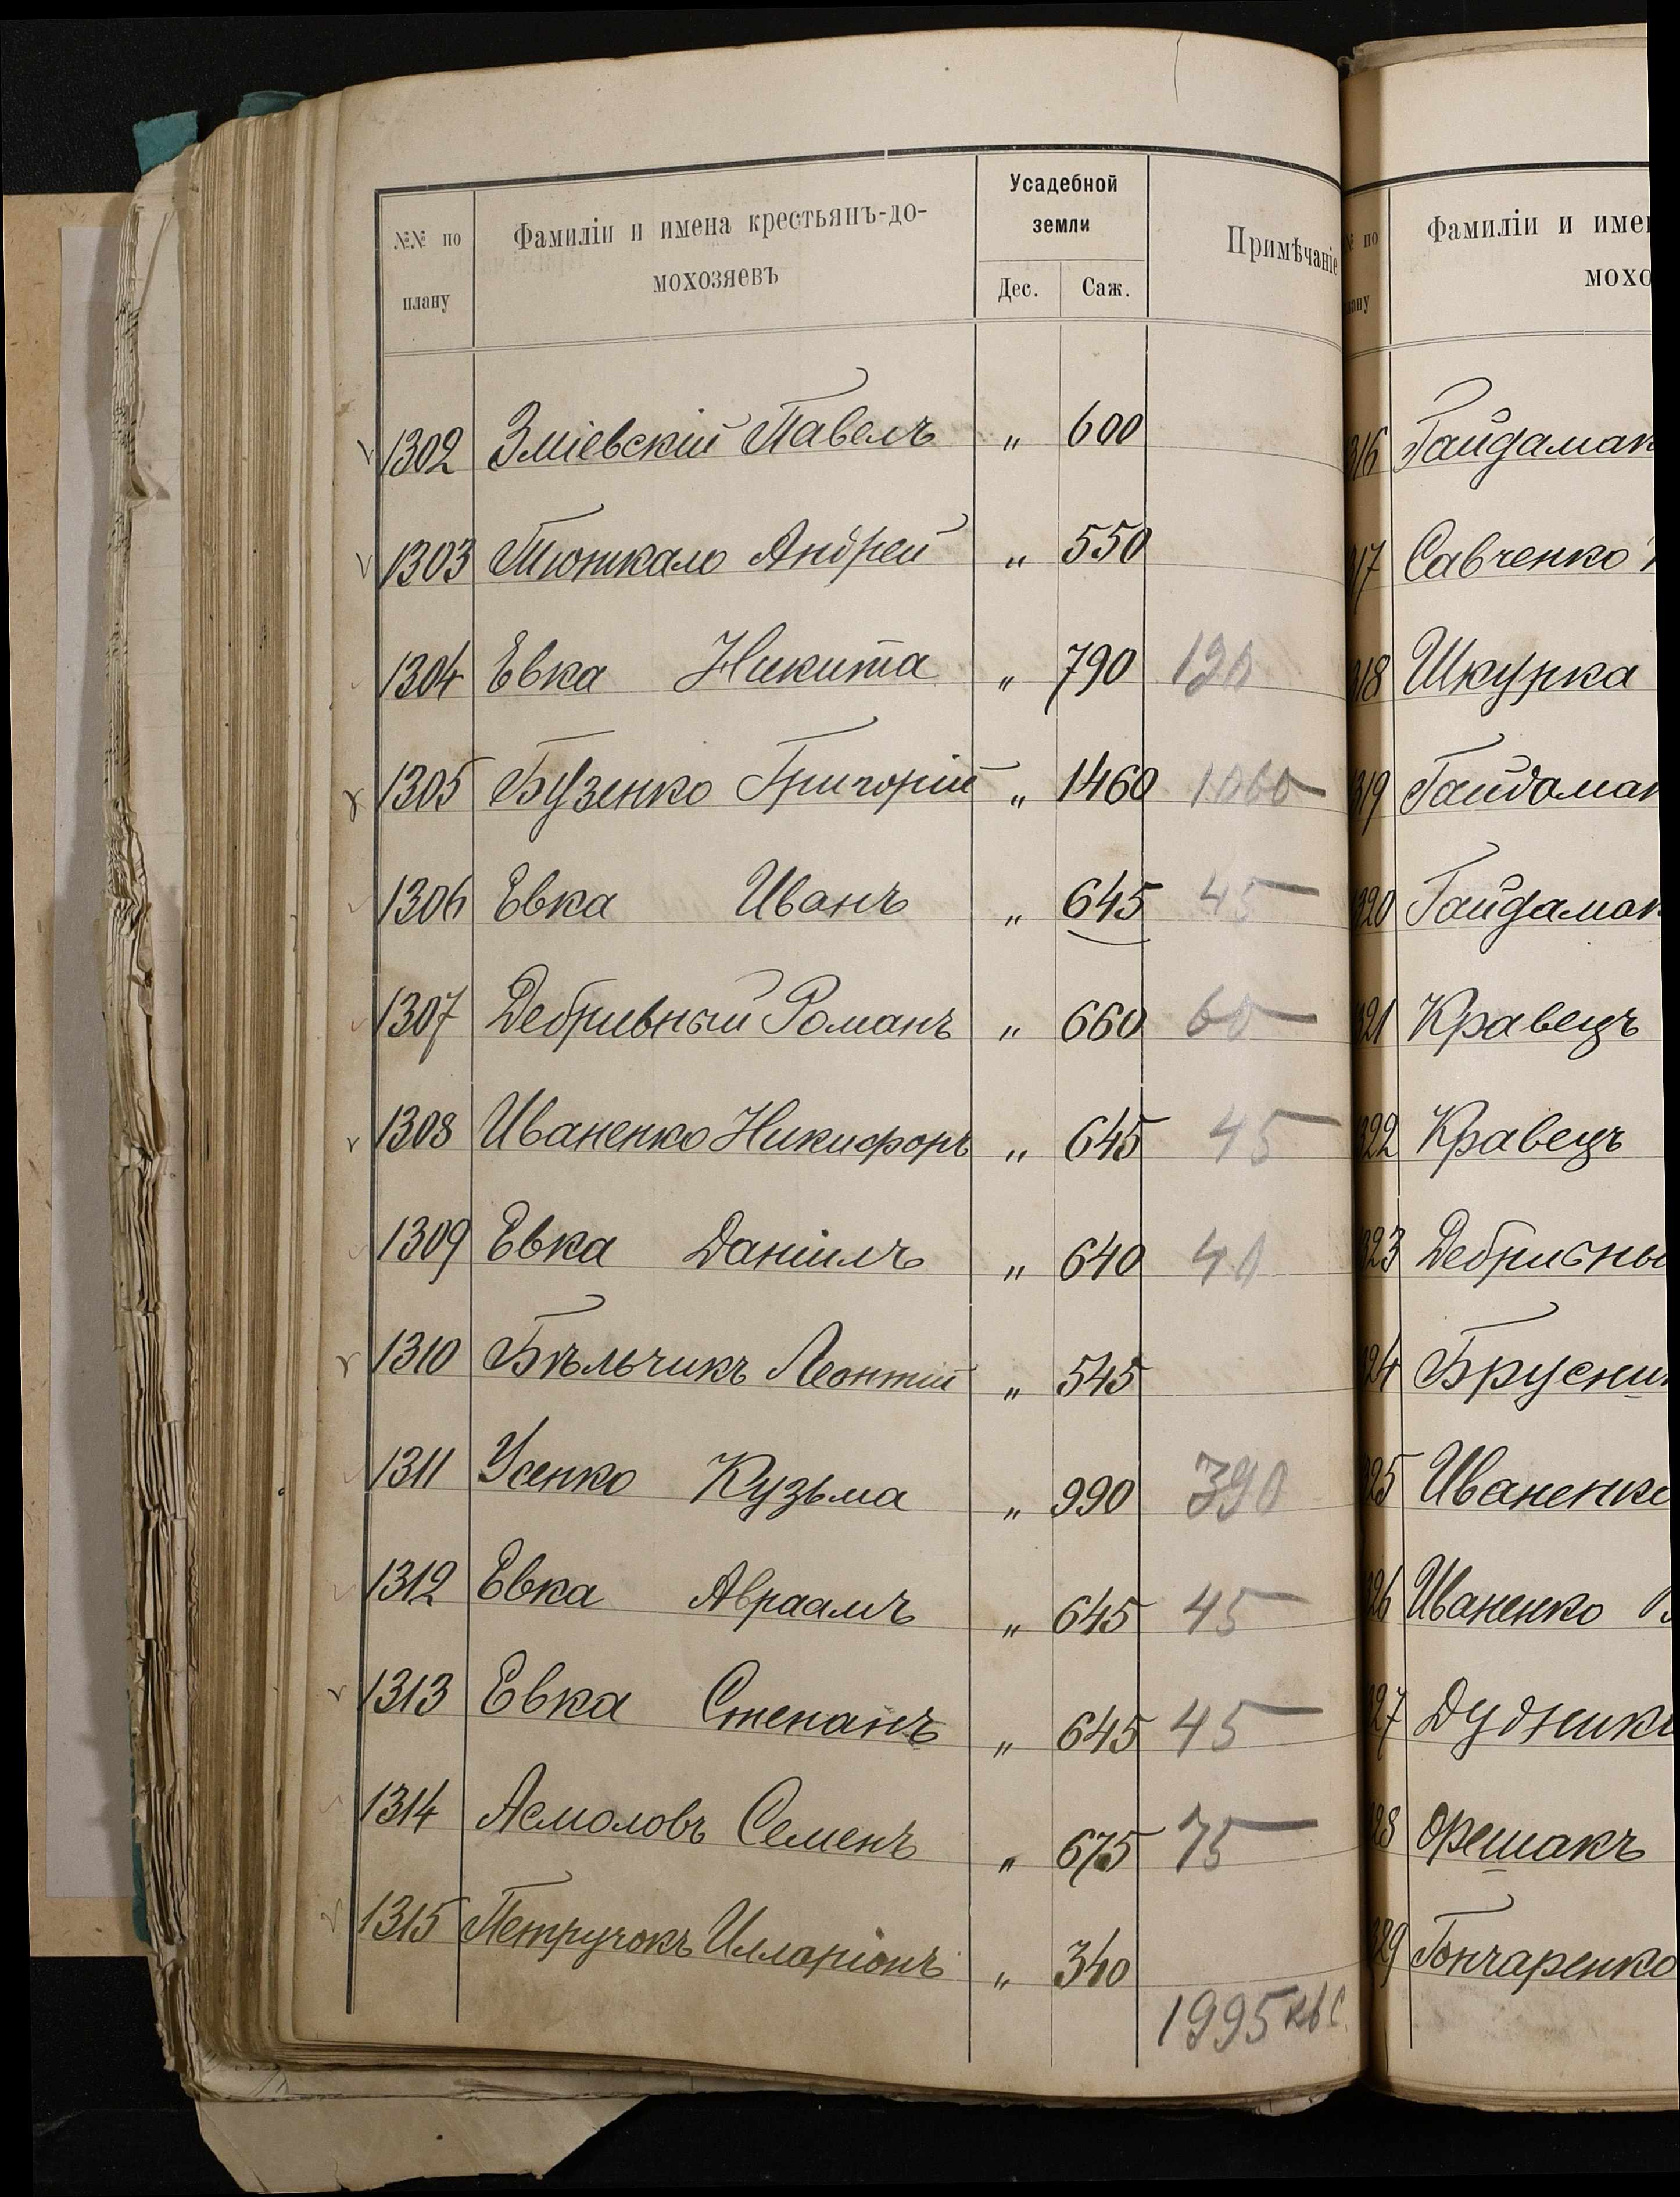 №№ по плану | Фамиліи и имена крестьянъ-домохозяевъ | Усадебной земли | Примѣчаніе
Дес. | Саж.
1302 Зміевскій Павелъ „ 600
1303 Тюткало Андрей „ 550
1304 Евка Никита „ 790 190
1305 Бузенко Григорій „ 1460 1060
1306 Евка Иванъ „ 645 45
1307 Дебривный Романъ „ 660 60
1308 Иваненко Никифоръ „ 645 45
1309 Евка Даніилъ „ 640 40
1310 Бѣльчикъ Леонтій „ 545
1311 Усенко Кузьма „ 990 390
1312 Евка Авраамъ „ 645 45
1313 Евка Степанъ „ 645 45
1314 Асмоловъ Семенъ „ 675 75
1315 Петручокъ Илларіонъ „ 340
1995 кв с.
№ по плану | Фамиліи и име
мохо
316 Гайдамак
317 Савченко
318 Шкурка
319 Гайдамак
320 Гайдамак
321 Кравецъ
322 Кравецъ
323 Дебривны
324 Брусни
325 Иваненко
326 Иваненко
327 Дудник
328 Орешакъ
329 Гончаренко